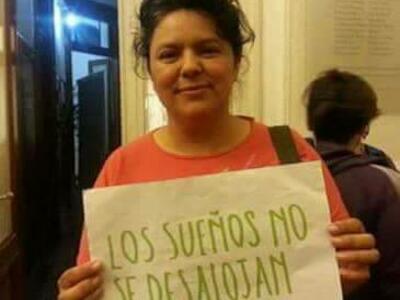 LOS SUEÑOS NO
SE DESALOJAN